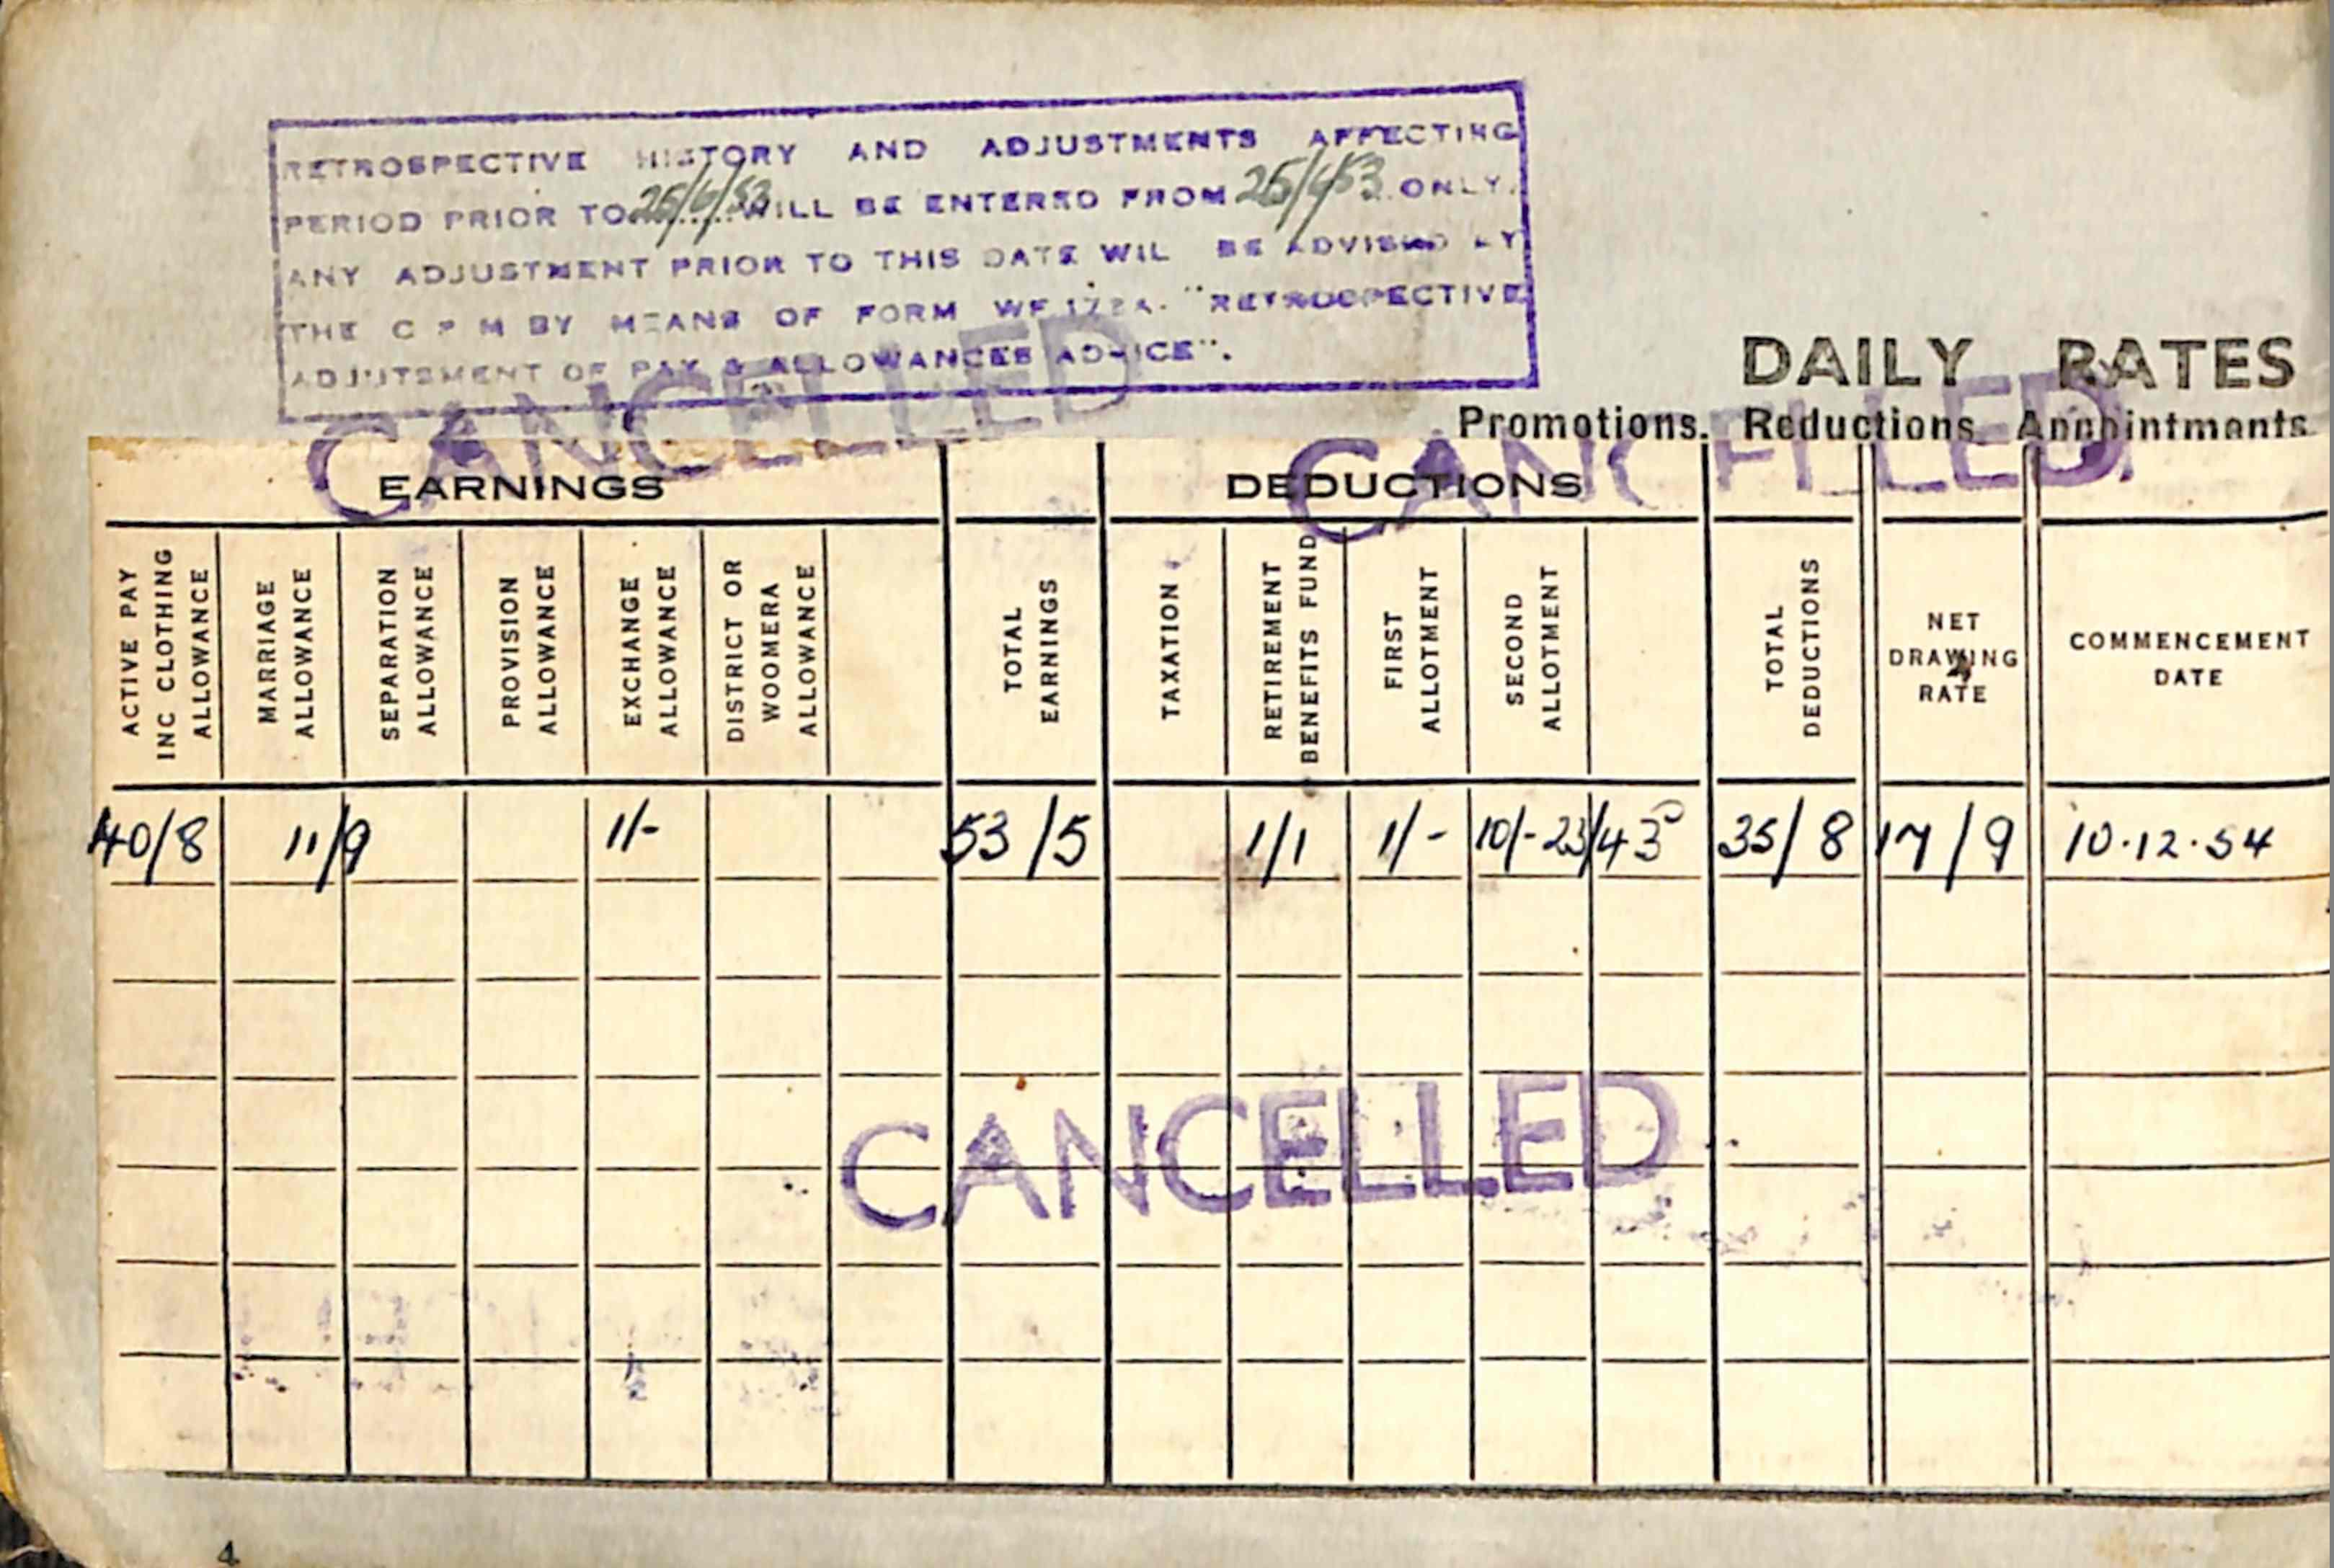 RETROSPECTIVE HISTORY AND ADJUSTMENTS AFFECTING
PERIOD PRIOR TO 25/6/53 WILL BE ENTERED FROM 25/6/53 ONLY.
ANY ADJUSTMENT PRIOR TO THIS DATE WIL BE ADVISED BY
THE C P M BY MEANS OF FORM "RETROSPECTIVE
ADJUTSMENT OF PAY & ALLOWANCES ADVICE".
CANCELLED
DAILY RATES
Promotions. Reductions. Appointments.
CANCELLED
EARNINGS DEDUCTIONS
ACTIVE PAY INC CLOTHING ALLOWANCE
MARRIAGE ALLOWANCE
SEPARATION ALLOWANCE
PROVISION ALLOWANCE
EXCHANGE ALLOWANCE
DISTRICT OR WOOMERA ALLOWANCE
TOTAL EARNINGS
TAXATION
RETIREMENT BENEFITS FUND
FIRST ALLOTMENT
SECOND ALLOTMENT
TOTAL DEDUCTIONS
NET DRAWING RATE
COMMENCEMENT DATE
40/8 11/9 1/- 53/5 1/1 1/- 10/- 35/8 17/9 10.12.54
CANCELLED
4